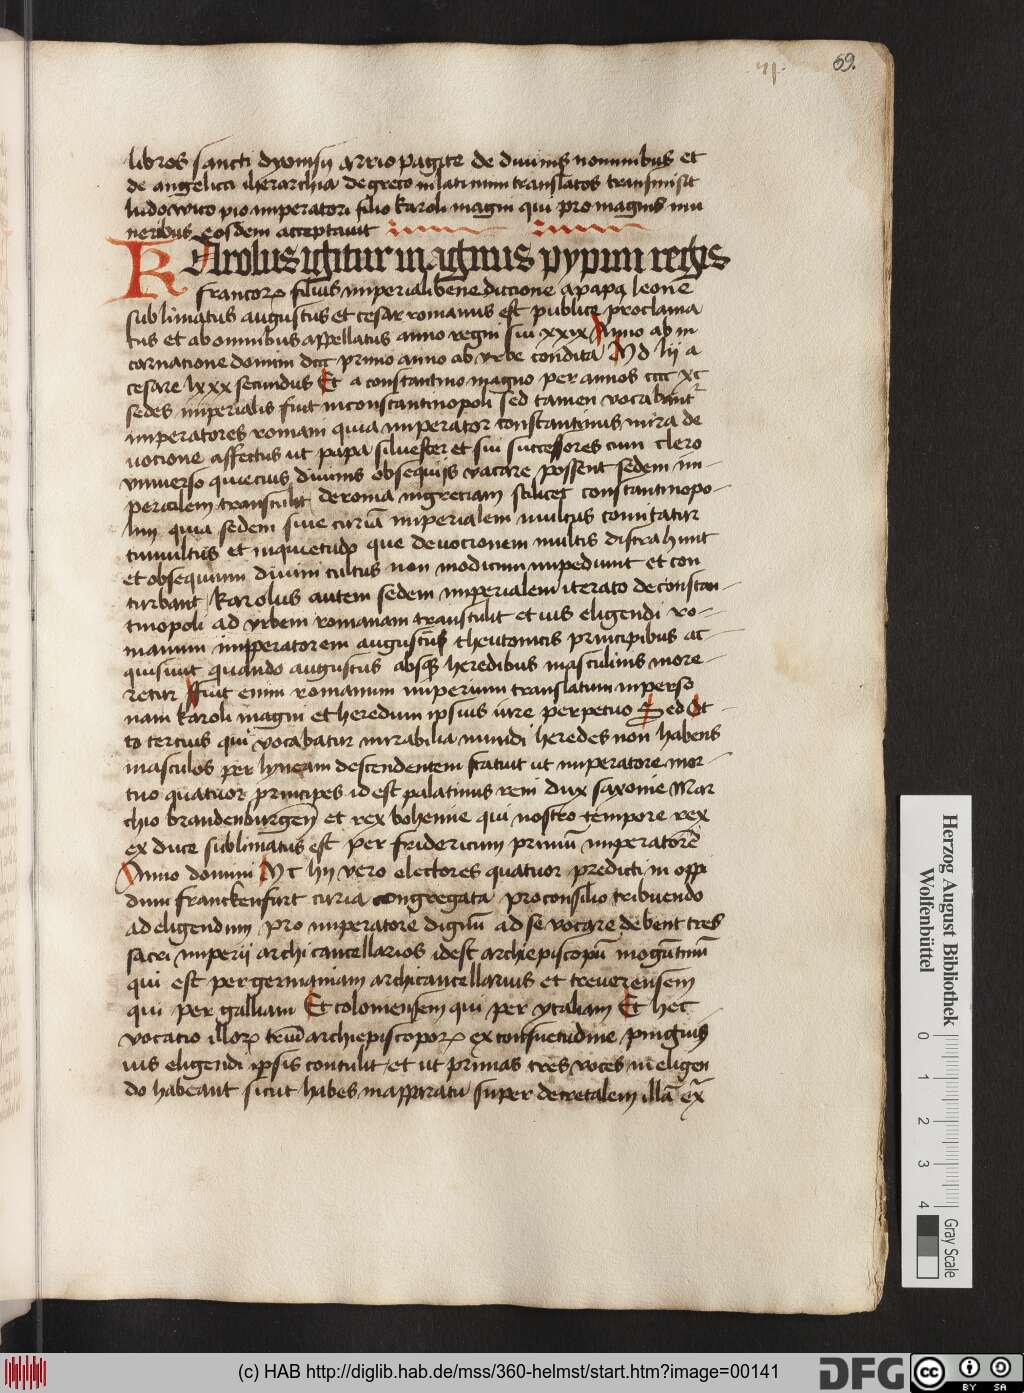 71.
59.
libros sancti dyonisij arriopagite de diuinis nominibus et
de angelica iherarchia de greco in latinum translatos transmisit
ludowico pio imperatori filio karoli magni qui pro magnis mu
neribus eosdem acceptauit
KArolus igitur magnus pypini regis
francorꝝ filius imperiali benediccione a papa leone
sublimatus augustus et cesar romanus est publice proclama
tus et ab omnibus appellatus anno regni sui xxxix Anno ab in
carnatione domini dccc primo anno ab vrbe condita Md lij a
cesare lxxx secundus Et a constantino magno per annos cccc xc
sedes imperialis fuit in constantinopoli sed tamen vocabant᷑
imperatores romani quia imperator constantinus mira de
uocione affectus ut papa siluester et sui successores cum clero
vniuerso quiecius diuinis obsequijs vacare possent sedem im-
perialem transtulit de roma in greciam scilicet constantinopo-
lim quia sedem siue curiā imperialem multus comitatur
tumultus et inquietudo que deuotionem multis distrahunt
et obsequium diuini cultus non modicum impediunt et con
turbant / karolus autem sedem imperialem iterato de constan-
tinopoli ad vrbem romanam transtulit et ius eligendi ro-
manum imperatorem augustum theutonicis principibus ac-
quisiuit quando augustus absqꝫ heredibus masculinis more-
retur ffuit enim romanum imperium translatum in perso
nam karoli magni et heredum ipsius iure perpetuo Sed Ot-
to tercius qui vocabatur mirabilia mundi heredes non habens
masculos per lyneam descendentem statuit ut imperatore mor-
tuo quatuor principes id est palatinus reni dux saxonie Mar
chio brandenburgen̄ et rex bohemie qui nostro tempore rex
ex duce sublimatus est per fridericum primū imperatorē
Anno domini Mc lij vero electores quatuor predicti in oppi
dum franckenfurt curia congregata pro consilio tribuendo
ad eligendum pro imperatore dignū ad se vocare debent tres
sacri imperii archicancellarios id est archiepiscopū mogūtinū
qui est per germaniam archicancellarius et treuerensem
qui per galliam Et coloniensem qui per ytaliam Et hec
vocatio illorꝝ triū archiepiscoporꝝ ex consuetudine pinguis
ius eligendi ipsis contulit et ut primas tres voces in eligen
do habeant sicut habes in apparatu super decretalem illā ex̄
Herzog August Bibliothek
Wolfenbüttel
0 1 2 3 4
Gray Scale
(c) HAB http://diglib.hab.de/mss/360-helmst/start.htm?image=00141
DFG
cc BY SA